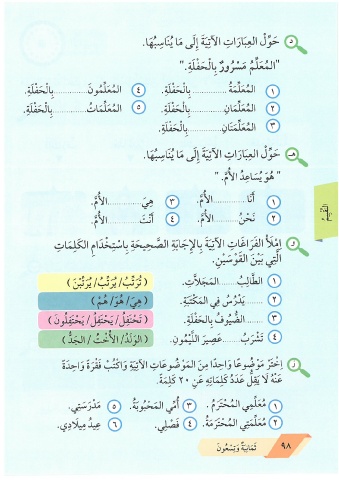 د حَوِّلِ العِبَارَاتِ الآتِيَةَ إِلَى مَا يُنَاسِبُهَا.
"المُعَلِّمُ مَسْرُورٌ بِالحَفْلَةِ."
١ المُعَلِّمَةُ ........... بِالحَفْلَةِ. ٤ المُعَلِّمُونَ ........... بِالحَفْلَةِ.
٢ المُعَلِّمَانِ ........... بِالحَفْلَةِ. ٥ المُعَلِّمَاتُ ........... بِالحَفْلَةِ.
٣ المُعَلِّمَتَانِ ........... بِالحَفْلَةِ.
هـ حَوِّلِ العِبَارَاتِ الآتِيَةَ إِلَى مَا يُنَاسِبُهَا.
"هُوَ يُسَاعِدُ الأُمَّ."
١ أَنَا ........... الأُمَّ. ٣ هِيَ ........... الأُمَّ.
٢ نَحْنُ ........... الأُمَّ. ٤ أَنْتَ ........... الأُمَّ.
و اِمْلَأِ الفَرَاغَاتِ الآتِيَةَ بِالإِجَابَةِ الصَّحِيحَةِ بِاسْتِخْدَامِ الكَلِمَاتِ
الَّتِي بَيْنَ القَوْسَيْنِ.
١ الطَّالِبُ ........... المَجَلَّاتِ. (تُرَتِّبُ/ يُرَتِّبُ/ يُرَتِّبْنَ)
٢ ........... يَدْرُسُ فِي المَكْتَبَةِ. (هِيَ/ هُوَ/ هُمْ)
٣ ........... الضُّيُوفُ بِالحَفْلَةِ. (تَحْتَفِلُ/ يَحْتَفِلُ/ يَحْتَفِلُونَ)
٤ تَشْرَبُ ........... عَصِيرَ اللَّيْمُونِ. (الوَلَدُ/ الأُخْتُ/ الجَدُّ)
ز اِخْتَرْ مَوْضُوعًا وَاحِدًا مِنَ المَوْضُوعَاتِ الآتِيَةِ وَاكْتُبْ فَقْرَةً وَاحِدَةً
عَنْهُ لَا يَقِلُّ عَدَدُ كَلِمَاتِهِ عَنْ ٢٠ كَلِمَةً.
١ مُعَلِّمِي المُحْتَرَمُ. ٣ أُمِّي المَحْبُوبَةُ. ٥ مَدْرَسَتِي.
٢ مُعَلِّمَتِي المُحْتَرَمَةُ. ٤ فَصْلِي. ٦ عِيدُ مِيلَادِي.
٩٨ ثَمَانِيَةٌ وَتِسْعُونَ